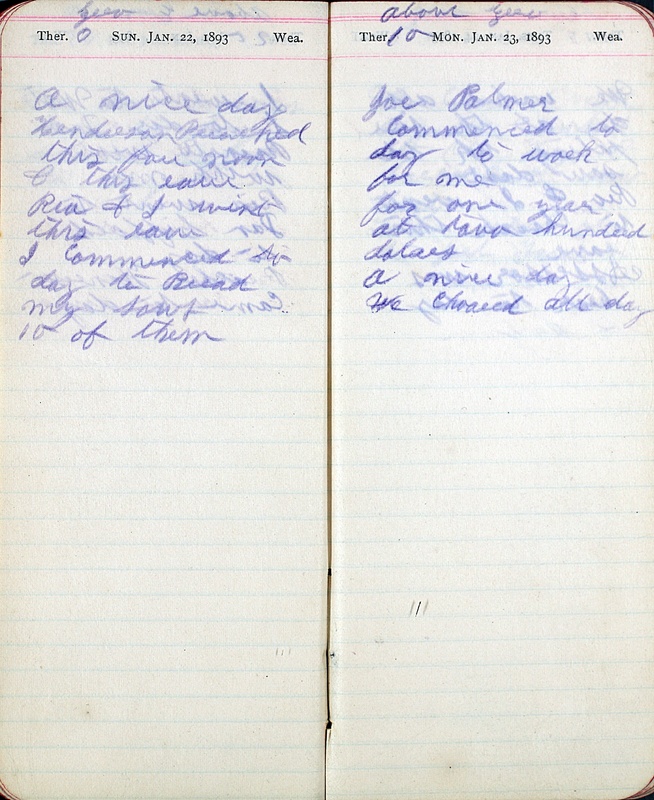 Zero
Ther. 0 SUN. JAN. 22, 1893 Wea.
A nice day
Henderson Preached
this fou noon
& this eave
Ria & I went
this eave
I Commenced to
day to Bread
my sows
10 of them
about Zero
Ther. 10 MON. JAN. 23, 1893 Wea.
Joe Palmer
Commenced to
day to work
for me
for one year
at two hundred
dolaes
A nice day
We Choared all day